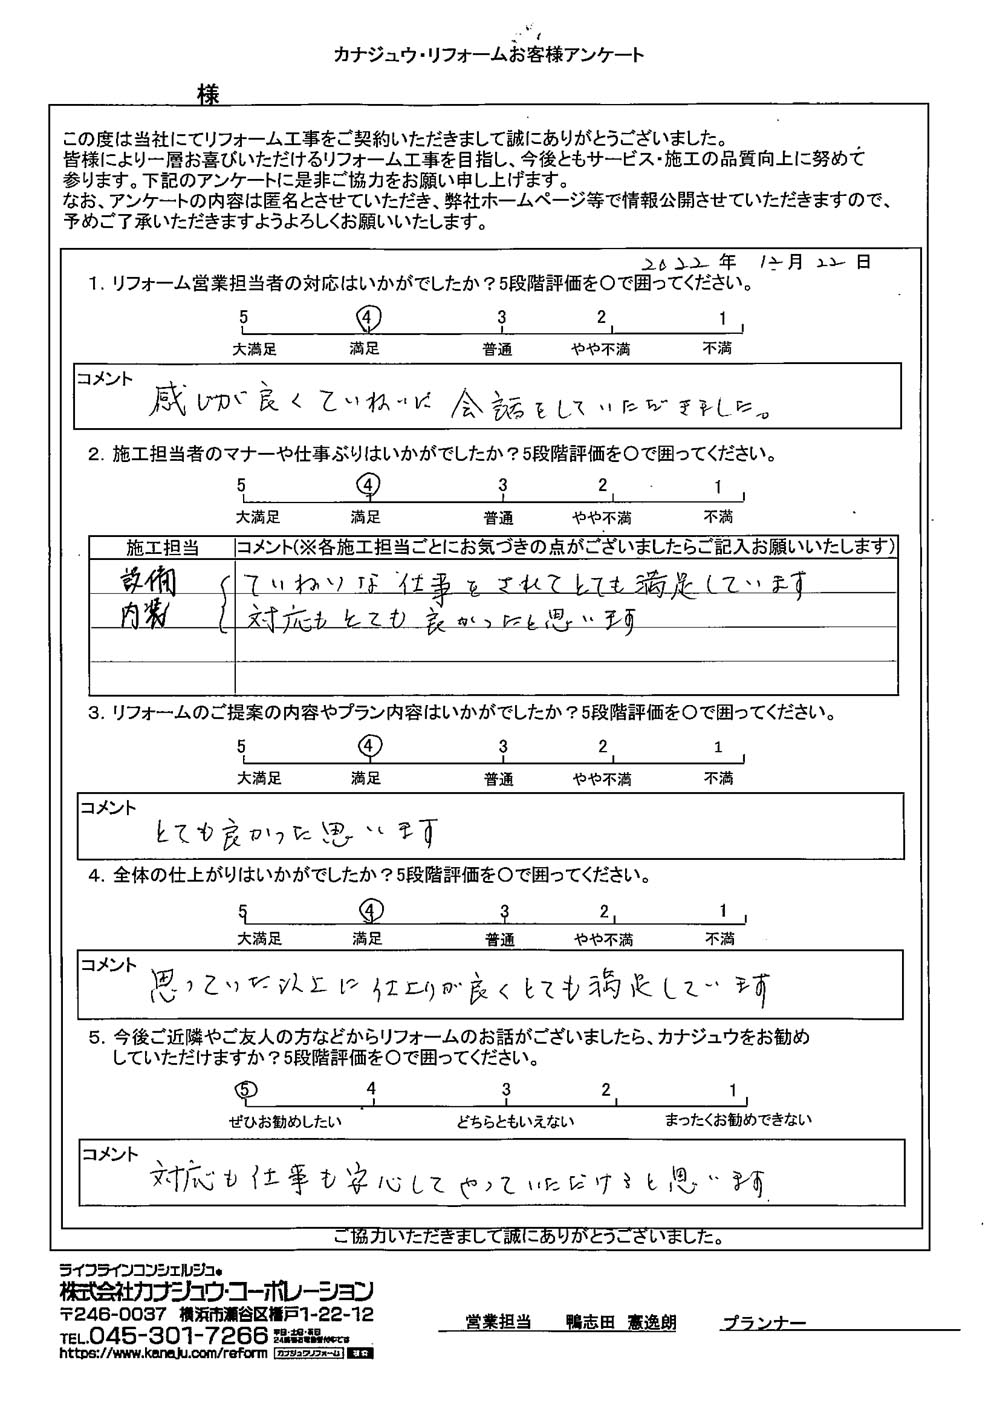 カナジュウ・リフォームお客様アンケート
様
この度は当社にてリフォーム工事をご契約いただきまして誠にありがとうございました。
皆様により一層お喜びいただけるリフォーム工事を目指し、今後ともサービス・施工の品質向上に努めて
参ります。下記のアンケートに是非ご協力をお願い申し上げます。
なお、アンケートの内容は匿名とさせていただき、弊社ホームページ等で情報公開させていただきますので、
予めご了承いただきますようよろしくお願いいたします。
2022年 12月 22日
1. リフォーム営業担当者の対応はいかがでしたか？5段階評価を〇で囲ってください。
5 4 3 2 1
大満足 満足 普通 やや不満 不満
コメント
感じが良くていねいに会話をしていただきました。
2. 施工担当者のマナーや仕事ぶりはいかがでしたか？5段階評価を〇で囲ってください。
5 4 3 2 1
大満足 満足 普通 やや不満 不満
施工担当 コメント(※各施工担当ごとにお気づきの点がございましたらご記入お願いいたします)
設備 ていねいな仕事をされてとても満足しています
内装 対応もとても良かったと思います
3. リフォームのご提案の内容やプラン内容はいかがでしたか？5段階評価を〇で囲ってください。
5 4 3 2 1
大満足 満足 普通 やや不満 不満
コメント
とても良かった思います
4. 全体の仕上がりはいかがでしたか？5段階評価を〇で囲ってください。
5 4 3 2 1
大満足 満足 普通 やや不満 不満
コメント
思っていた以上に仕上りが良くとても満足しています
5. 今後ご近隣やご友人の方などからリフォームのお話がございましたら、カナジュウをお勧め
していただけますか？5段階評価を〇で囲ってください。
5 4 3 2 1
ぜひお勧めしたい どちらともいえない まったくお勧めできない
コメント
対応も仕事も安心してやっていただけると思います
ご協力いただきまして誠にありがとうございました。
ライフラインコンシェルジュ
株式会社カナジュウ・コーポレーション
〒246-0037 横浜市瀬谷区橋戸1-22-12
TEL.045-301-7266
https://www.kanaju.com/reform カナジュウリフォーム 検索
営業担当 鴨志田 憲逸朗 プランナー